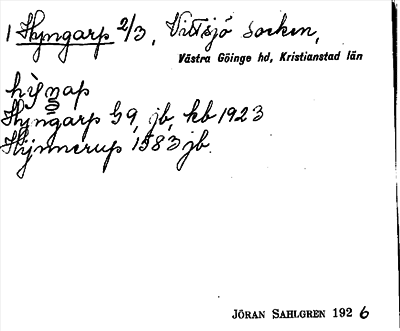 1 Hyngarp 2/3, Vittsjö socken,
Västra Göinge hd, Kristianstad län
hỳŋap
Hyngarp G9, jb, kb 1923
Hynnerup 1583 jb.
JÖRAN SAHLGREN 1926